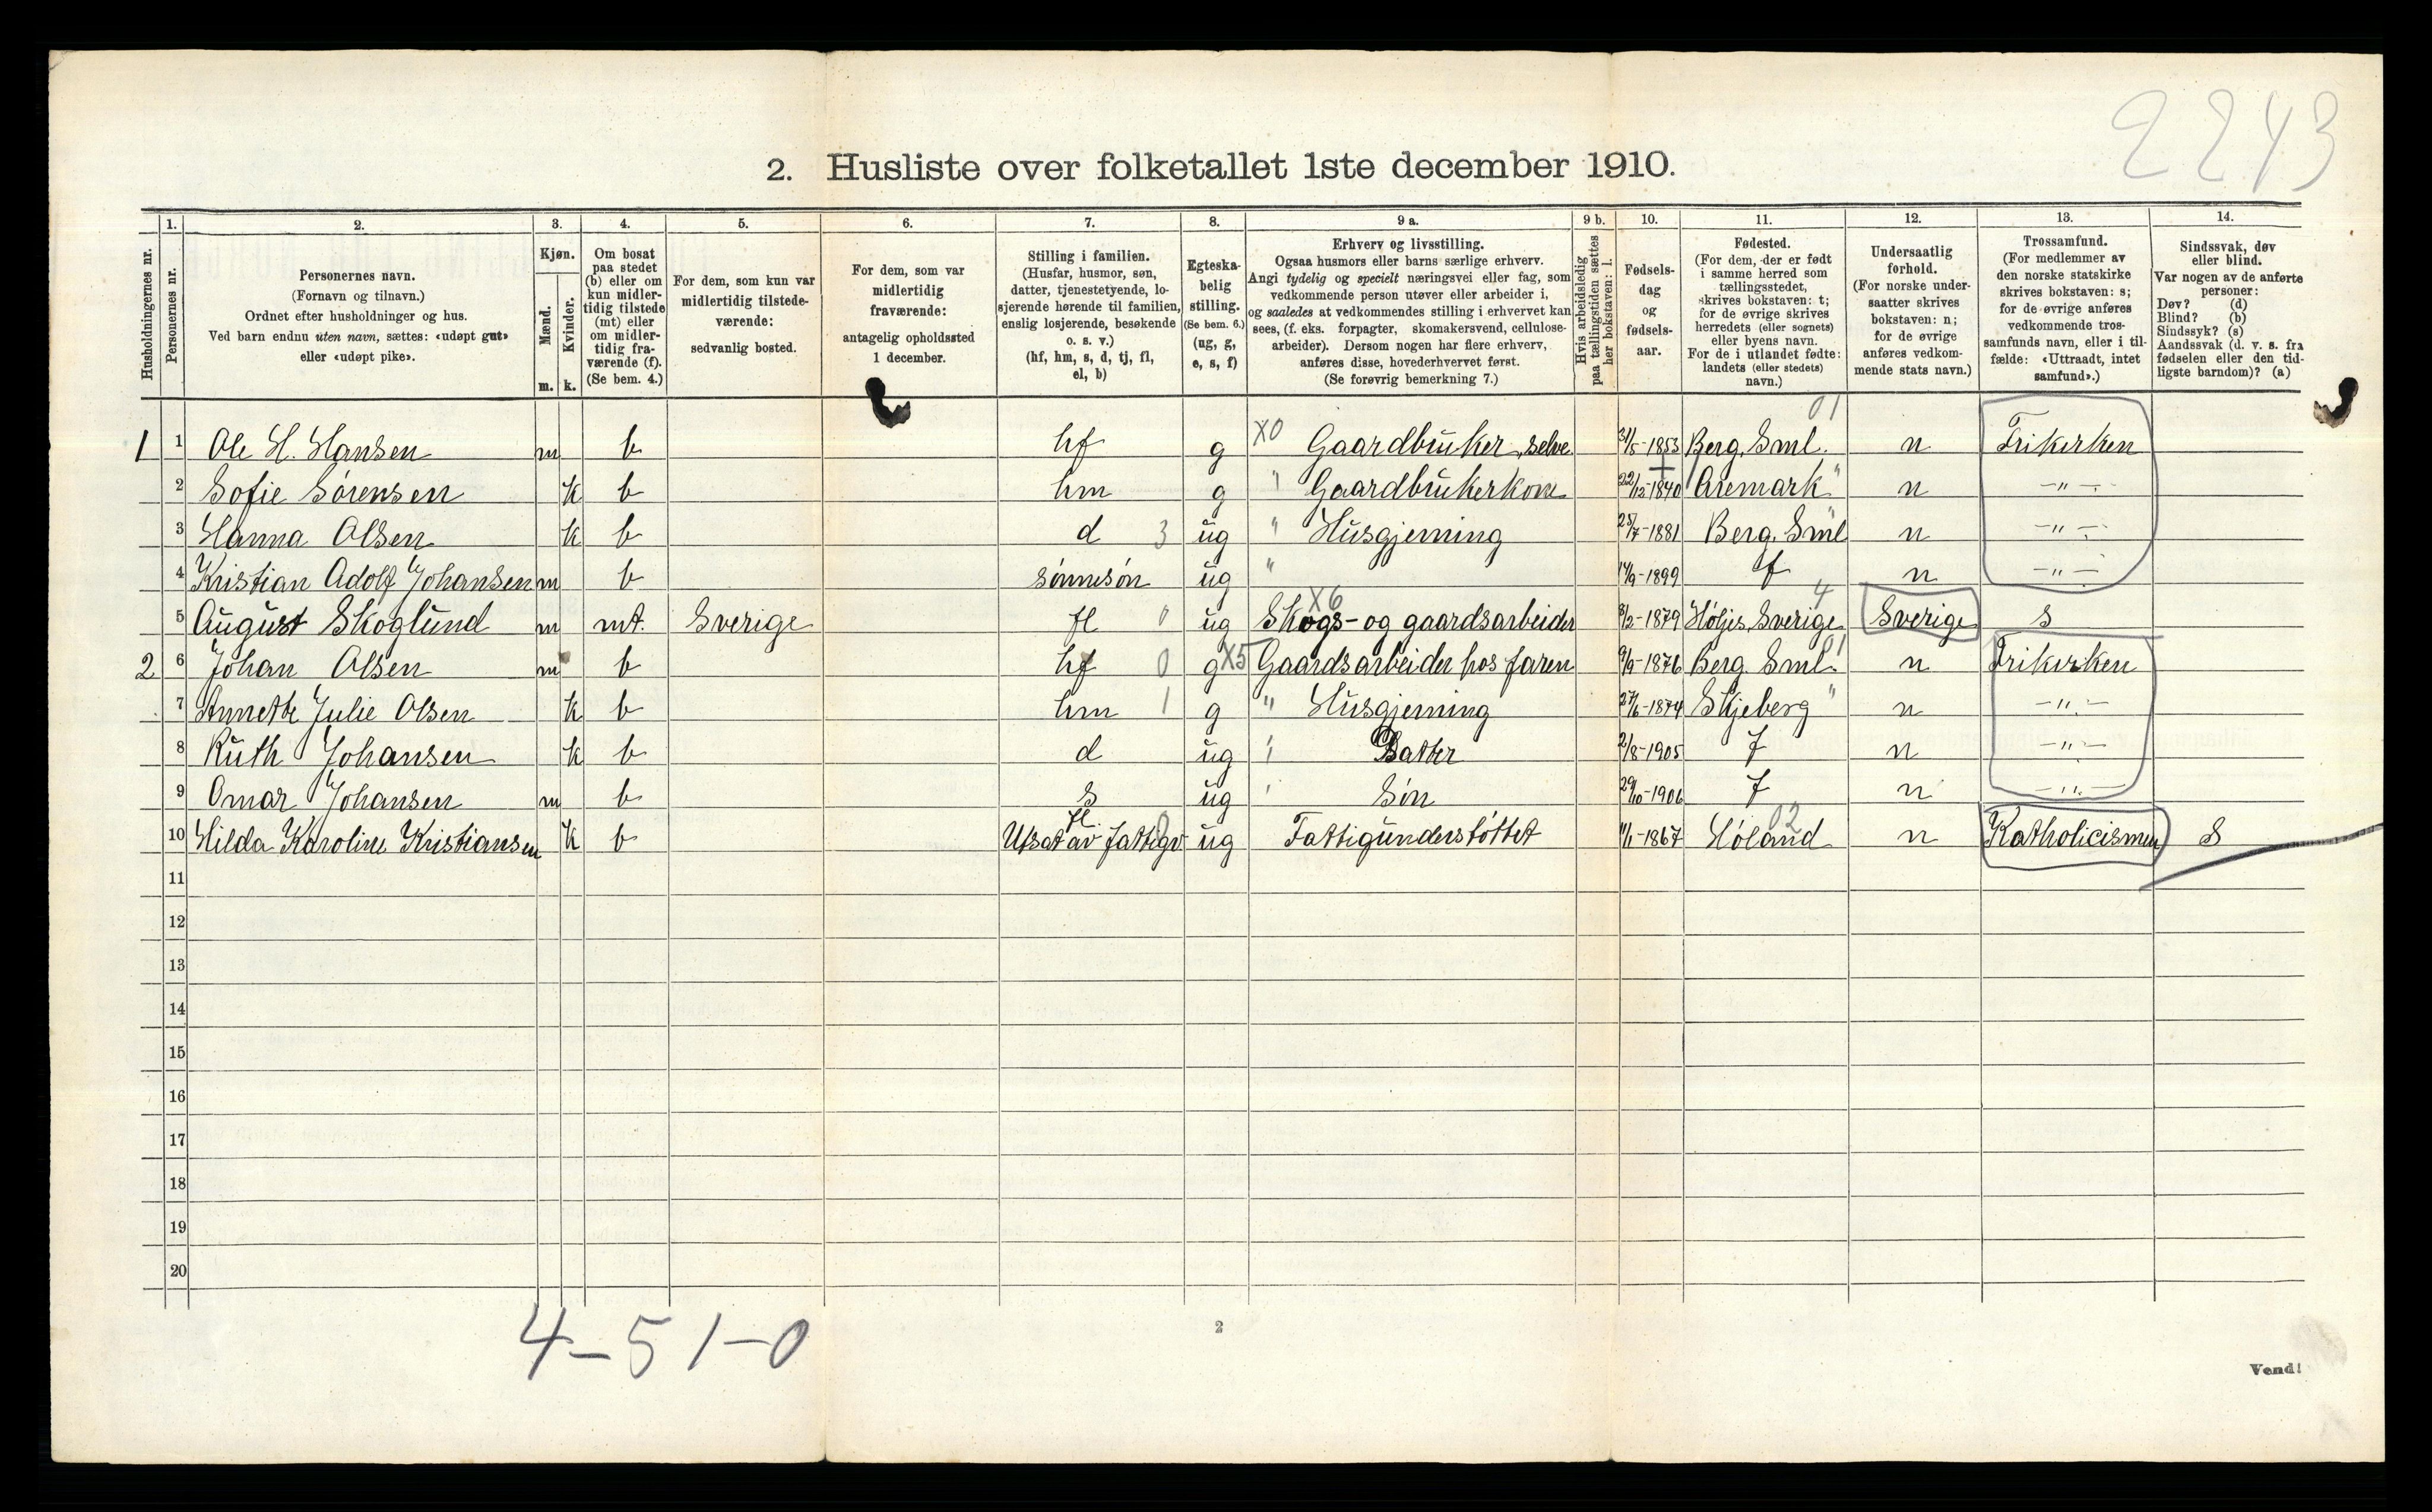 2243
2. Husliste over folketallet 1ste december 1910.
1. 2. 3. 4. 5. 6. 7. 8. 9 a. 9 b. 10. 11. 12. 13. 14.
Husholdningernes nr.
Personernes nr.
Personernes navn.
(Fornavn og tilnavn.)
Ordnet efter husholdninger og hus.
Ved barn endnu uten navn, sættes: «udøpt gut»
eller «udøpt pike».
Kjøn.
Mænd.
Kvinder.
m. k.
Om bosat
paa stedet
(b) eller om
kun midler-
tidig tilstede
(mt) eller
om midler-
tidig fra-
værende (f).
(Se bem. 4.)
For dem, som kun var
midlertidig tilstede-
værende:
sedvanlig bosted.
For dem, som var
midlertidig
fraværende:
antagelig opholdssted
1 december.
Stilling i familien.
(Husfar, husmor, søn,
datter, tjenestetyende, lo-
sjerende hørende til familien,
enslig losjerende, besøkende
o. s. v.)
(hf, hm, s, d, tj, fl,
el, b)
Egteska-
belig
stilling.
(Se bem. 6.)
(ug, g,
e, s, f)
Erhverv og livsstilling.
Ogsaa husmors eller barns særlige erhverv.
Angi tydelig og specielt næringsvei eller fag, som
vedkommende person utøver eller arbeider i,
og saaledes at vedkommendes stilling i erhvervet kan
sees, (f. eks. forpagter, skomakersvend, cellulose-
arbeider). Dersom nogen har flere erhverv,
anføres disse, hovederhvervet først.
(Se forøvrig bemerkning 7.)
Hvis arbeidsledig
paa tællingstiden sættes
her bokstaven: l.
Fødsels-
dag
og
fødsels-
aar.
Fødested.
(For dem, der er født
i samme herred som
tællingsstedet,
skrives bokstaven: t;
for de øvrige skrives
herredets (eller sognets)
eller byens navn.
For de i utlandet fødte:
landets (eller stedets)
navn.)
Undersaatlig
forhold.
(For norske under-
saatter skrives
bokstaven: n;
for de øvrige
anføres vedkom-
mende stats navn.)
Trossamfund.
(For medlemmer av
den norske statskirke
skrives bokstaven: s;
for de øvrige anføres
vedkommende tros-
samfunds navn, eller i til-
fælde: «Uttraadt, intet
samfund».)
Sindssvak, døv
eller blind.
Var nogen av de anførte
personer:
Døv? (d)
Blind? (b)
Sindssyk? (s)
Aandssvak (d. v. s. fra
fødselen eller den tid-
ligste barndom)? (a)
01
1 1 Ole H. Hansen m b hf g X0 Gaardbruker, selve. 31/5-1853 Berg, Sml. n Frikirken
2 Sofie Sørensen k b hm g " Gaardbrukerkone 22/12-1840 Aremark " n -"-
3 Hanna Olsen k b d 3 ug " Husgjerning 25/7-1881 Berg, Sml n -"-
4 Kristian Adolf Johansen m b sønnesøn ug " 14/9-1899 f n -"-
X6 4
5 August Skoglund m mt. Sverige fl 0 ug Skogs- og gaardsarbeider 8/2-1879 Høljes, Sverige Sverige s
2 6 Johan Olsen m b hf 0 g X5 Gaardsarbeider hos faren 9/9-1876 Berg Sml. 01 n Frikirken
7 Annette Julie Olsen k b hm 1 g " Husgjerning 27/6-1874 Skjeberg " n -"-
8 Ruth Johansen k b d ug " Datter 2/8-1905 f n -"-
9 Omar Johansen m b s ug " Søn 29/10-1906 f n -"-
fl. 0 02
10 Hilda Karoline Kristiansen k b Utsat av fattigv ug Fattigunderstøttet 11/1-1867 Høland n Katholicismen S
11
12
13
14
15
16
17
18
19
20
4-51-0
2
Vend!